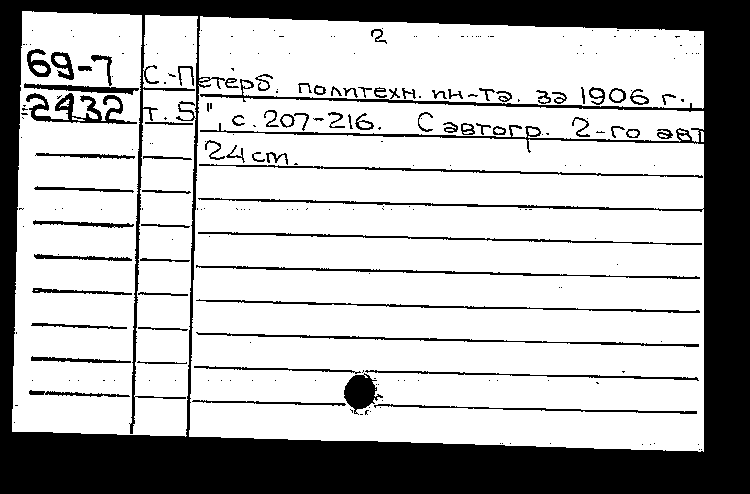 2
69-7 С.-Петерб. политехн. ин-та. за 1906 г.,
2432 т. 5", с. 207-216. С автогр. 2-го авт
24 cm.